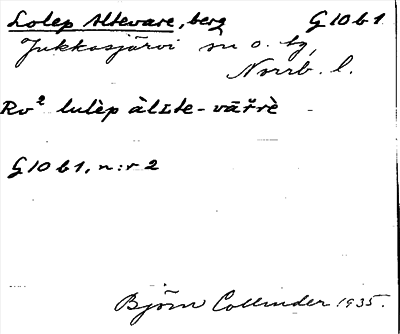 Lolep Altevare, berg G 10 b 1
Jukkasjärvi sn o. tg,
Norrb. l.
Rv² lulèp àlɪte-vāřrè
G 10 b 1, n:r 2
Björn Collinder 1935.